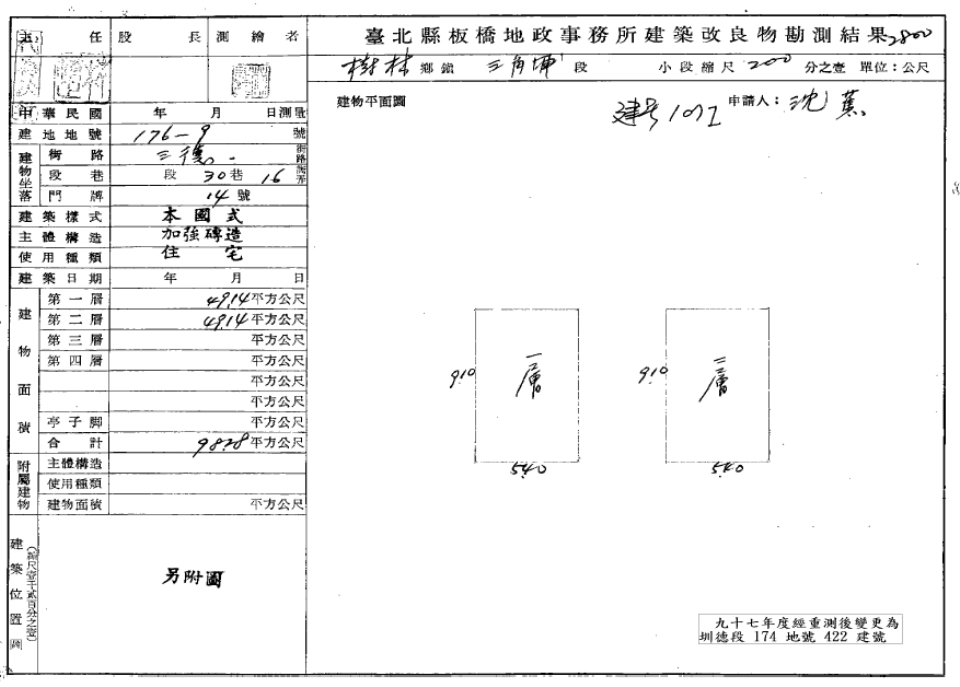 主任 股長 測繪者 臺北縣板橋地政事務所建築改良物勘測結果 2800
樹林鄉鎮 三角埔段 小段縮尺 200 分之壹 單位：公尺
中華民國 年 月 日測量
建物平面圖 建号 申請人：沈蕉
建地地號 176-9 號
建物坐落
街路 三德 街路
段巷 段 30巷 16
門牌 14 號
建築樣式 本國式
主體構造 加強磚造
使用種類 住宅
建築日期 年 月 日
建物面積
第一層 49.14 平方公尺
第二層 49.14 平方公尺
第三層 平方公尺
第四層 平方公尺
平方公尺
平方公尺
亭子脚 平方公尺
合計 98.28 平方公尺
附屬建物
主體構造
使用種類
建物面積 平方公尺
建築位置圖
(縮尺壹千貳百分之壹)
另附圖
9.10 一層 5.40
9.10 二層 5.40
九十七年度經重測後變更為
圳德段 174 地號 422 建號